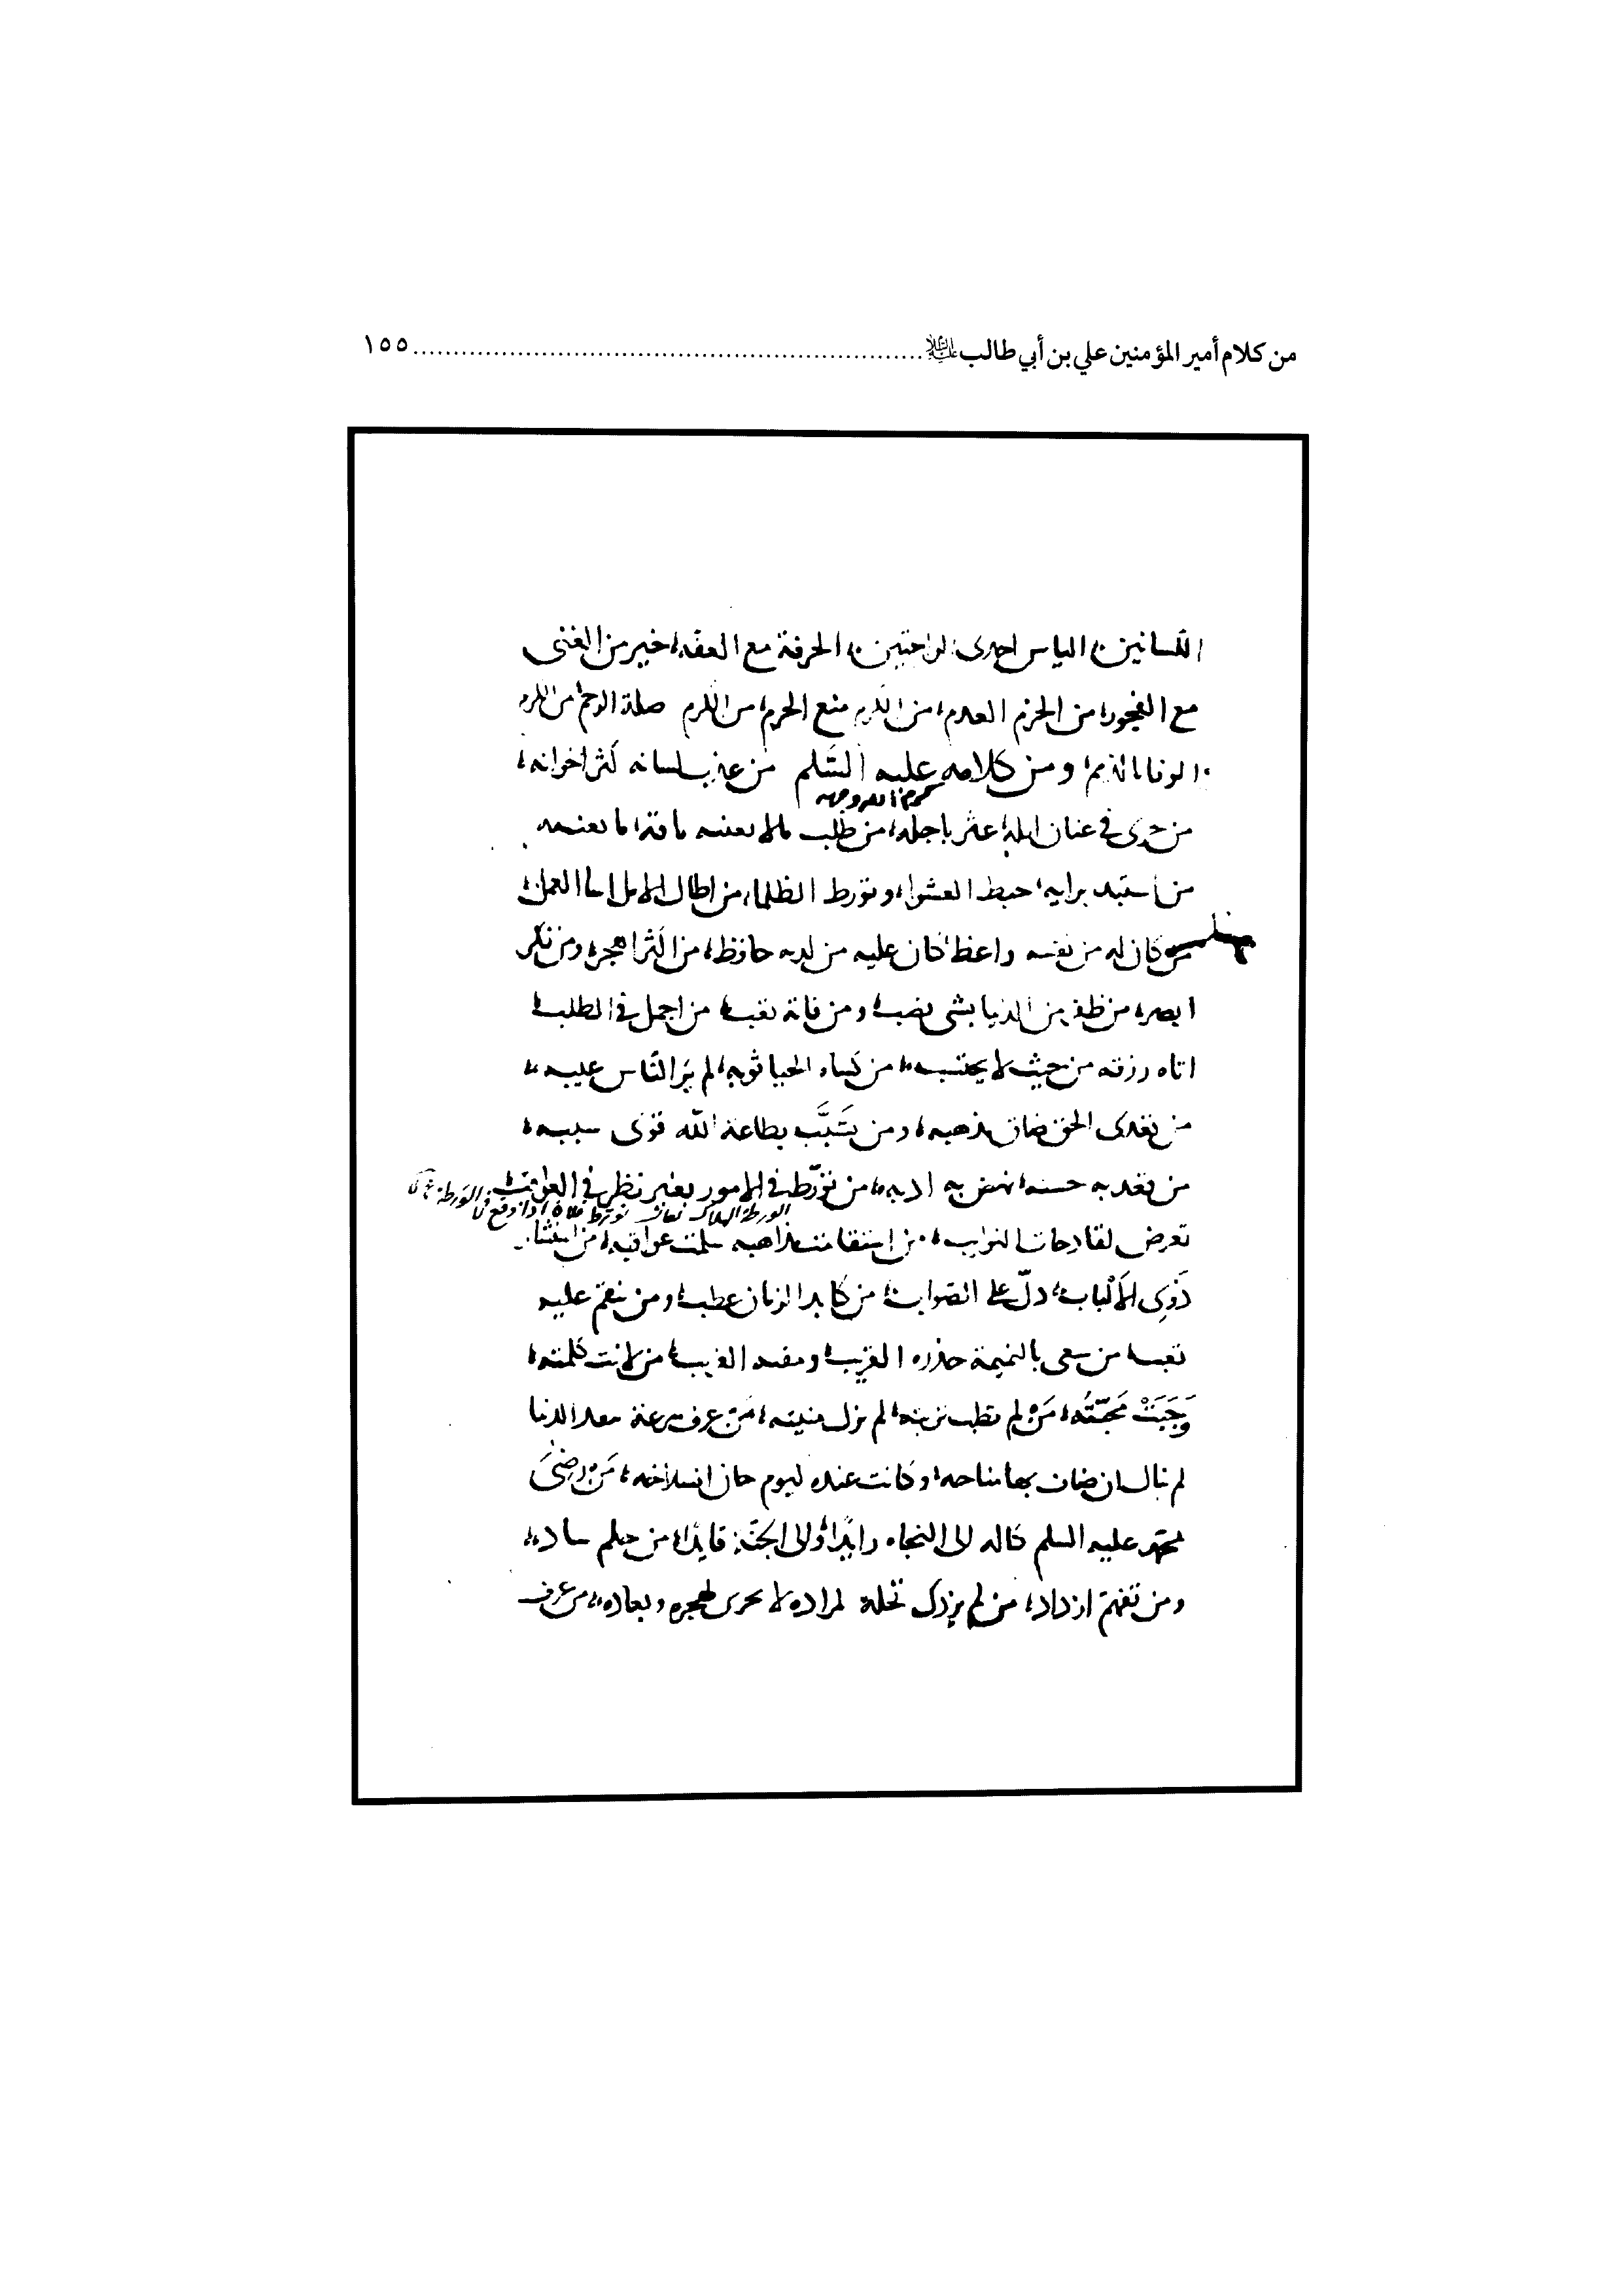 من كلام أمير المؤمنين علي بن أبي طالب ............ ١٥٥
اللسانين الياس احدى الراحتين الحرفة مع العفة خير من الغنى
مع الفجور من الحزم العدم من الكرم منع الحرم من الكرم صلة الرحم من الكرم
الوفا بالذمم ومن كلامه عليه السّلم من عذب لسانه كثر اخوانه
كرم الله وجهه
من جرى في عنان امله عثر باجله من طلب مالا يعنيه فاته ما يعنيه
من استبد برايه خبط العشوا وتورط الظلما من اطال الامل اسا العمل
من كان له من نفسه واعظا كان عليه من لديه حافظ من اكثر اهجر ومن تفكر
ابصر من ظفر من الدنيا بشي نصب ومن فاته تعب من اجمل في الطلب
اتاه رزقه من حيث لا يحتسب من كساه الحيا ثوبه لم ير النّاس عيبه
من تعدى الحق ضاق مذهبه ومن تسبَّب بطاعة الله قوى سببه
من قعد به حسبه نهض به ادبه من تورّط في الامور بغير نظر في العواقب
الورطة الهلاك تورط فلان اذا وقع في الورطة
تعرض لفادحات النوايب من استقامت مذاهبه سلمت عواقبه من استشار
ذَوِى الأَلْباب دلّ على الصواب من كابد الزمان عطب ومن ينقم عليه
تعب من سعى بالنميمة حذره القريب ومقته الغريب من لانت كلمته
وَجَبَتْ مَحَبّتُه مَن لم تطب تربته لم تزل منيته من عرف سرعة الدنيا
لم يبال ان ضاق بها مناحه وكانت عنده ليوم حان انسلاخه مَن رضِىَ
محمد عليه السلم كان له الى النجاه رايدًا والى الجنّة قايدا من حلم ساد
ومن تفهم ازداد من لم يزدك نحلة لمراده لا تجرى لهجره وبعاده من عرف